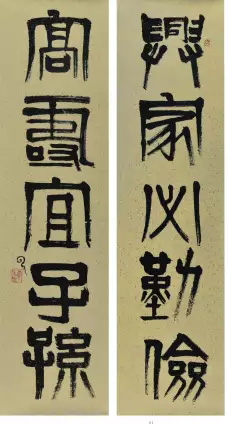 興家必勤儉
高壽宜子孫